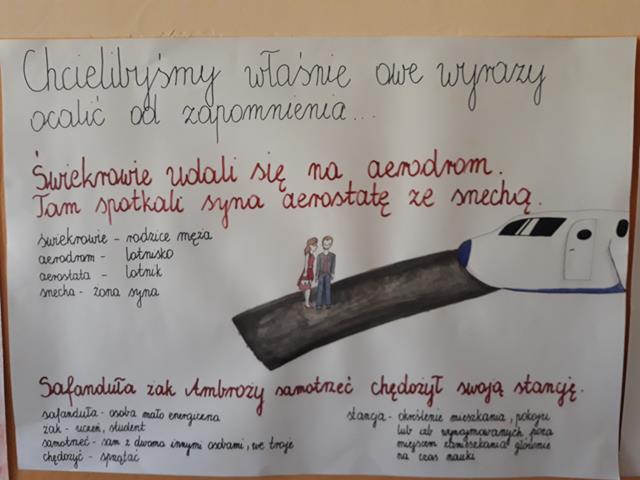 Chcielibyśmy właśnie owe wyrazy
ocalić od zapomnienia...
Świekrowie udali się na aerodrom.
Tam spotkali syna aerostatę ze snechą.
świekrowie - rodzice męża
aerodrom - lotnisko
aerostata - lotnik
snecha - żona syna
Safanduła żak Ambroży samotrzeć chędożył swoją stancję.
safanduła - osoba mało energiczna
żak - uczeń, student
samotrzeć - sam z dwoma innymi osobami, we troje
chędożyć - sprzątać
stancja - określenie mieszkania, pokoju
lub izb wynajmowanych poza
miejscem zamieszkania głównie
na czas nauki